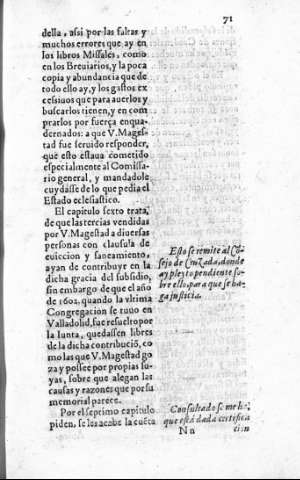 71
della, assi por las faltas y
muchos errores que ay en
los libros Missales, como
en los Breuiarios, y la poca
copia y abundancia que de
todo ello ay, y los gastos ex
cessiuos que para auerlos y
buscarlos tienen, y en com
prarlos por fuerça enqua-
dernados: a que V. Mages-
tad fue seruido responder,
que esto estaua cometido
especialmente al Comissa-
rio general, y mandadole
cuydasse de lo que pedia el
Estado eclesiastico.
El capitulo sexto trata,
de que las tercias vendidas
por V. Magestad a diuersas
personas con clausula de
euiccion y saneamiento,
ayan de contribuyr en la
dicha gracia del subsidio,
sin embargo de que el año
de 1602. quando la vltima
Congregacion se tuuo en
Valladolid, fue resuelto por
la Iunta, quedassen libres
de la dicha contribució, co
mo las que V. Magestad go
za y possee por propias su-
yas, sobre que alegan las
causas y razones que por su
memorial parece.
Por el septimo capitulo
piden, se les acabe la cuéta
Esto se remite al Cõ
sejo de Cruzada, donde
ay pleyto pendiente so-
bre ello, para que se ha-
ga justicia.
Consultado se me ha,
que está dada certifica
N n
cion